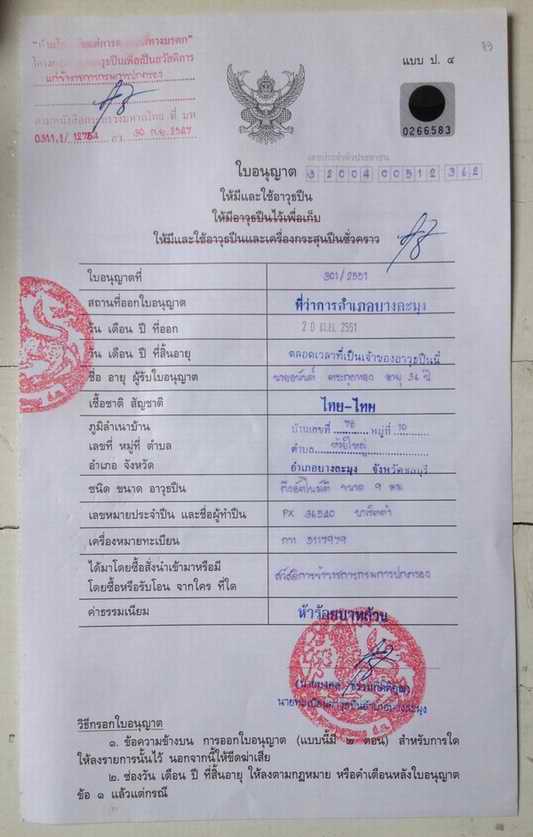 แบบ ป. ๔
แก่ข้าราชการกรมการปกครอง
0266583
เลขประจำตัวประชาชน
ใบอนุญาต 3 2004 00512 36 2
ให้มีและใช้อาวุธปืน
ให้มีอาวุธปืนไว้เพื่อเก็บ
ให้มีและใช้อาวุธปืนและเครื่องกระสุนปืนชั่วคราว
ใบอนุญาตที่ 301/2551
สถานที่ออกใบอนุญาต ที่ว่าการอำเภอบางละมุง
วัน เดือน ปี ที่ออก 20 2551
วัน เดือน ปี ที่สิ้นอายุ ตลอดเวลาที่เป็นเจ้าของอาวุธปืนนี้
ชื่อ อายุ ผู้รับใบอนุญาต อายุ 36 ปี
เชื้อชาติ สัญชาติ ไทย-ไทย
ภูมิลำเนาบ้าน บ้านเลขที่ 78 หมู่ที่ 10
เลขที่ หมู่ที่ ตำบล ตำบล ห้วยใหญ่
อำเภอ จังหวัด อำเภอบางละมุง จังหวัดชลบุรี
ชนิด ขนาด อาวุธปืน กึ่งอัตโนมัติ ขนาด 9 มม
เลขหมายประจำปืน และชื่อผู้ทำปืน PX 36520 บาเร็ตต้า
เครื่องหมายทะเบียน กท 5117979
ได้มาโดยซื้อสั่งนำเข้ามาหรือมี
โดยซื้อหรือรับโอน จากใคร ที่ใด สวัสดิการข้าราชการกรมการปกครอง
ค่าธรรมเนียม ห้าร้อยบาทถ้วน
นายทะเบียนอาวุธปืนอำเภอบางละมุง
วิธีกรอกใบอนุญาต
๑. ข้อความข้างบน การออกใบอนุญาต (แบบนี้มี ๒ ตอน) สำหรับการใด
ให้ลงรายการนั้นไว้ นอกจากนี้ให้ขีดฆ่าเสีย
๒. ช่องวัน เดือน ปี ที่สิ้นอายุ ให้ลงตามกฎหมาย หรือคำเตือนหลังใบอนุญาต
ข้อ ๑ แล้วแต่กรณี